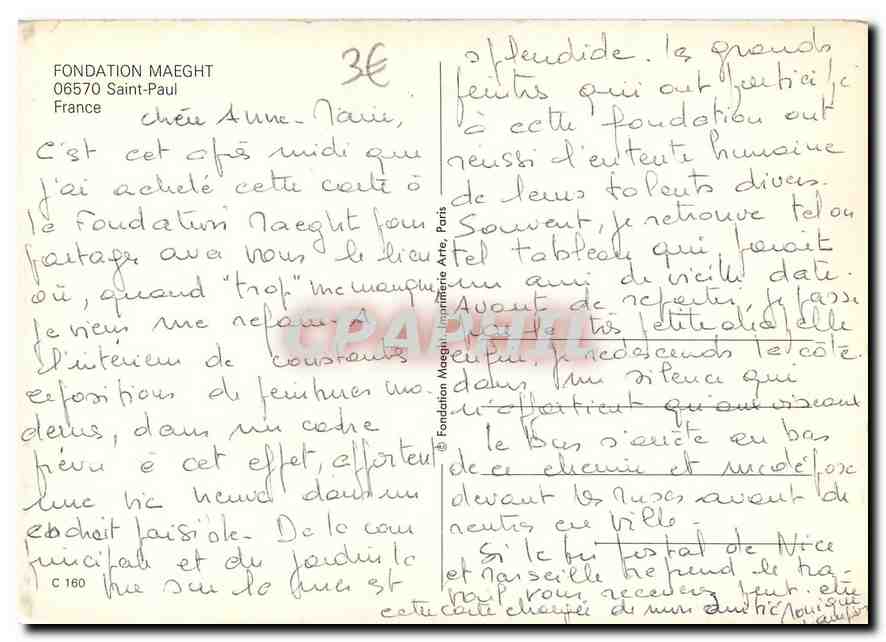 FONDATION MAEGHT
06570 Saint-Paul
France
3€
chère Anne-Marie,
C'est cet après midi que
j'ai acheté cette carte à
la Fondation Maeght pour
partager avec vous le lieu
où, quand "trop" me manque,
je viens me refaire. A
l'intérieur de constantes
expositions de peintures mo-
dernes, dans un cadre
prévu à cet effet, apportent
une vie neuve dans un
endroit paisible. De la cour
principale et du jardin la
vue sur la mer est
splendide. les grands
peintres qui ont participé
à cette fondation ont
réussi l'entente humaine
de leurs talents divers.
Souvent, je retrouve tel ou
tel tableau qui paraît
un ami de vieille date.
Avant de repartir, je passe
par la très petite chapelle
enfin, je redescends la côte
dans un silence qui
n'appartient qu'aux oiseaux
le bus s'arrête au bas
de ce chemin et me dépose
devant les musées avant de
rentrer en ville.
Si le tri postal de Nice
et Marseille reprend le tra-
vail vous recevrez peut-être
cette carte chargée de mon amitié Monique
© Fondation Maeght. Imprimerie Arte, Paris
C 160
CPAPHIL